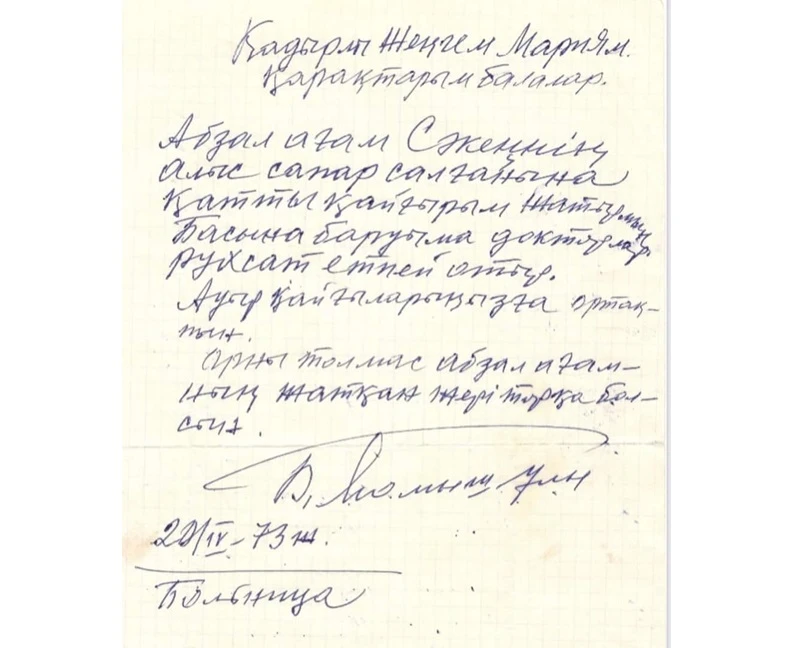 Қадірлі Жеңгем Мариям.
Қарақтарым балалар.
Абзал ағам Сәкеннің
алыс сапар салғанына
Қатты қайғырым жатырмын.
Басына баруыма докторлар
рұхсат етпей отыр.
Ауыр қайғыларыңызға ортақ-
пын.
Орны толмас абзал ағам-
ның жатқан жері торқа бол-
сын.
Б. Момыш-Ұлы
-IV-73ж.
Больница